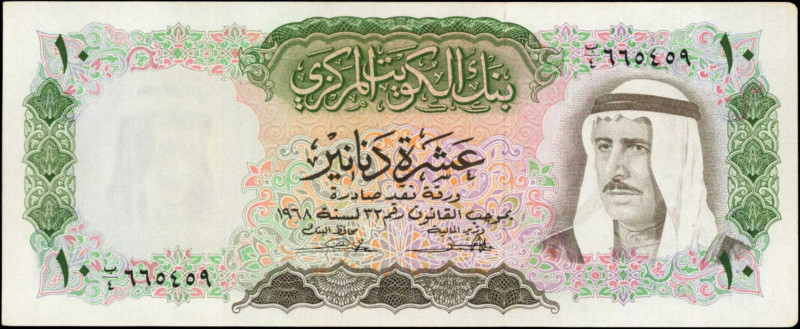 ١٠ ب/٤ ٦٦٥٤٥٩ ١٠
بنك الكويت المركزي
عشرة دنانير
ورقة نقد صادرة
بموجب القانون رقم ٣٢ لسنة ١٩٦٨
وزير المالية محافظ البنك
١٠ ب/٤ ٦٦٥٤٥٩ ١٠